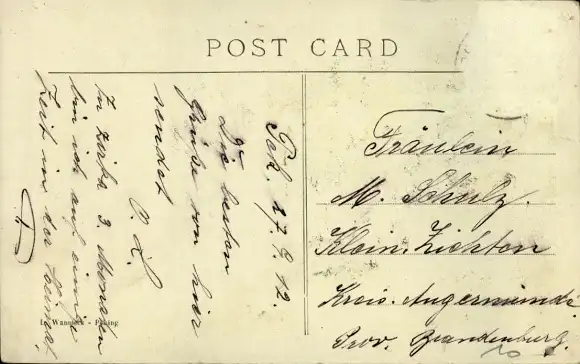 POST CARD
Pek. 17.8.12.
Die besten
Grüße von hier
sendet
O. L.
In zirka 3. Monaten
bin ich auf einige
Zeit in der Heimat.
Fräulein
M. Schulz.
Klein-Ziethen
Kreis. Angermünde
Prov. Brandenburg.
Peking